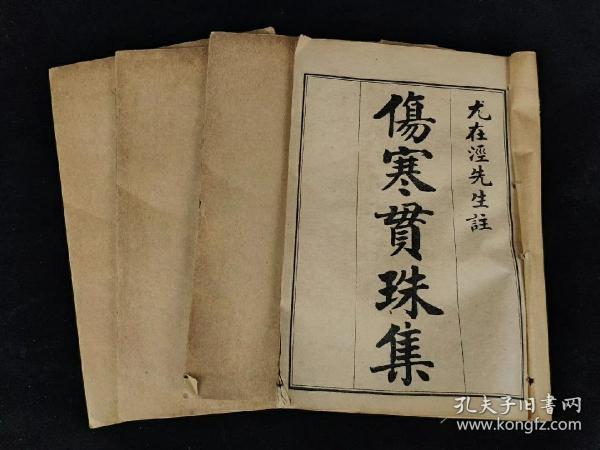 尤在涇先生註
傷寒貫珠集
孔夫子旧書网
www.kongfz.com